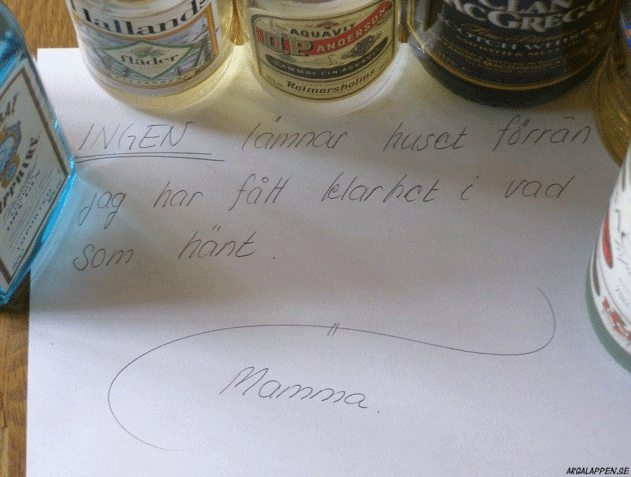 Hallands
fläder
AQUAVIT
O.P. ANDERSON
GAMMAL FIN AQUAVIT
Reimersholms
CLAN
MACGREGOR
SCOTCH WHISKY
SAPPHIRE
INGEN lämnar huset förrän
jag har fått klarhet i vad
som hänt.
Mamma.
ARGALAPPEN.SE